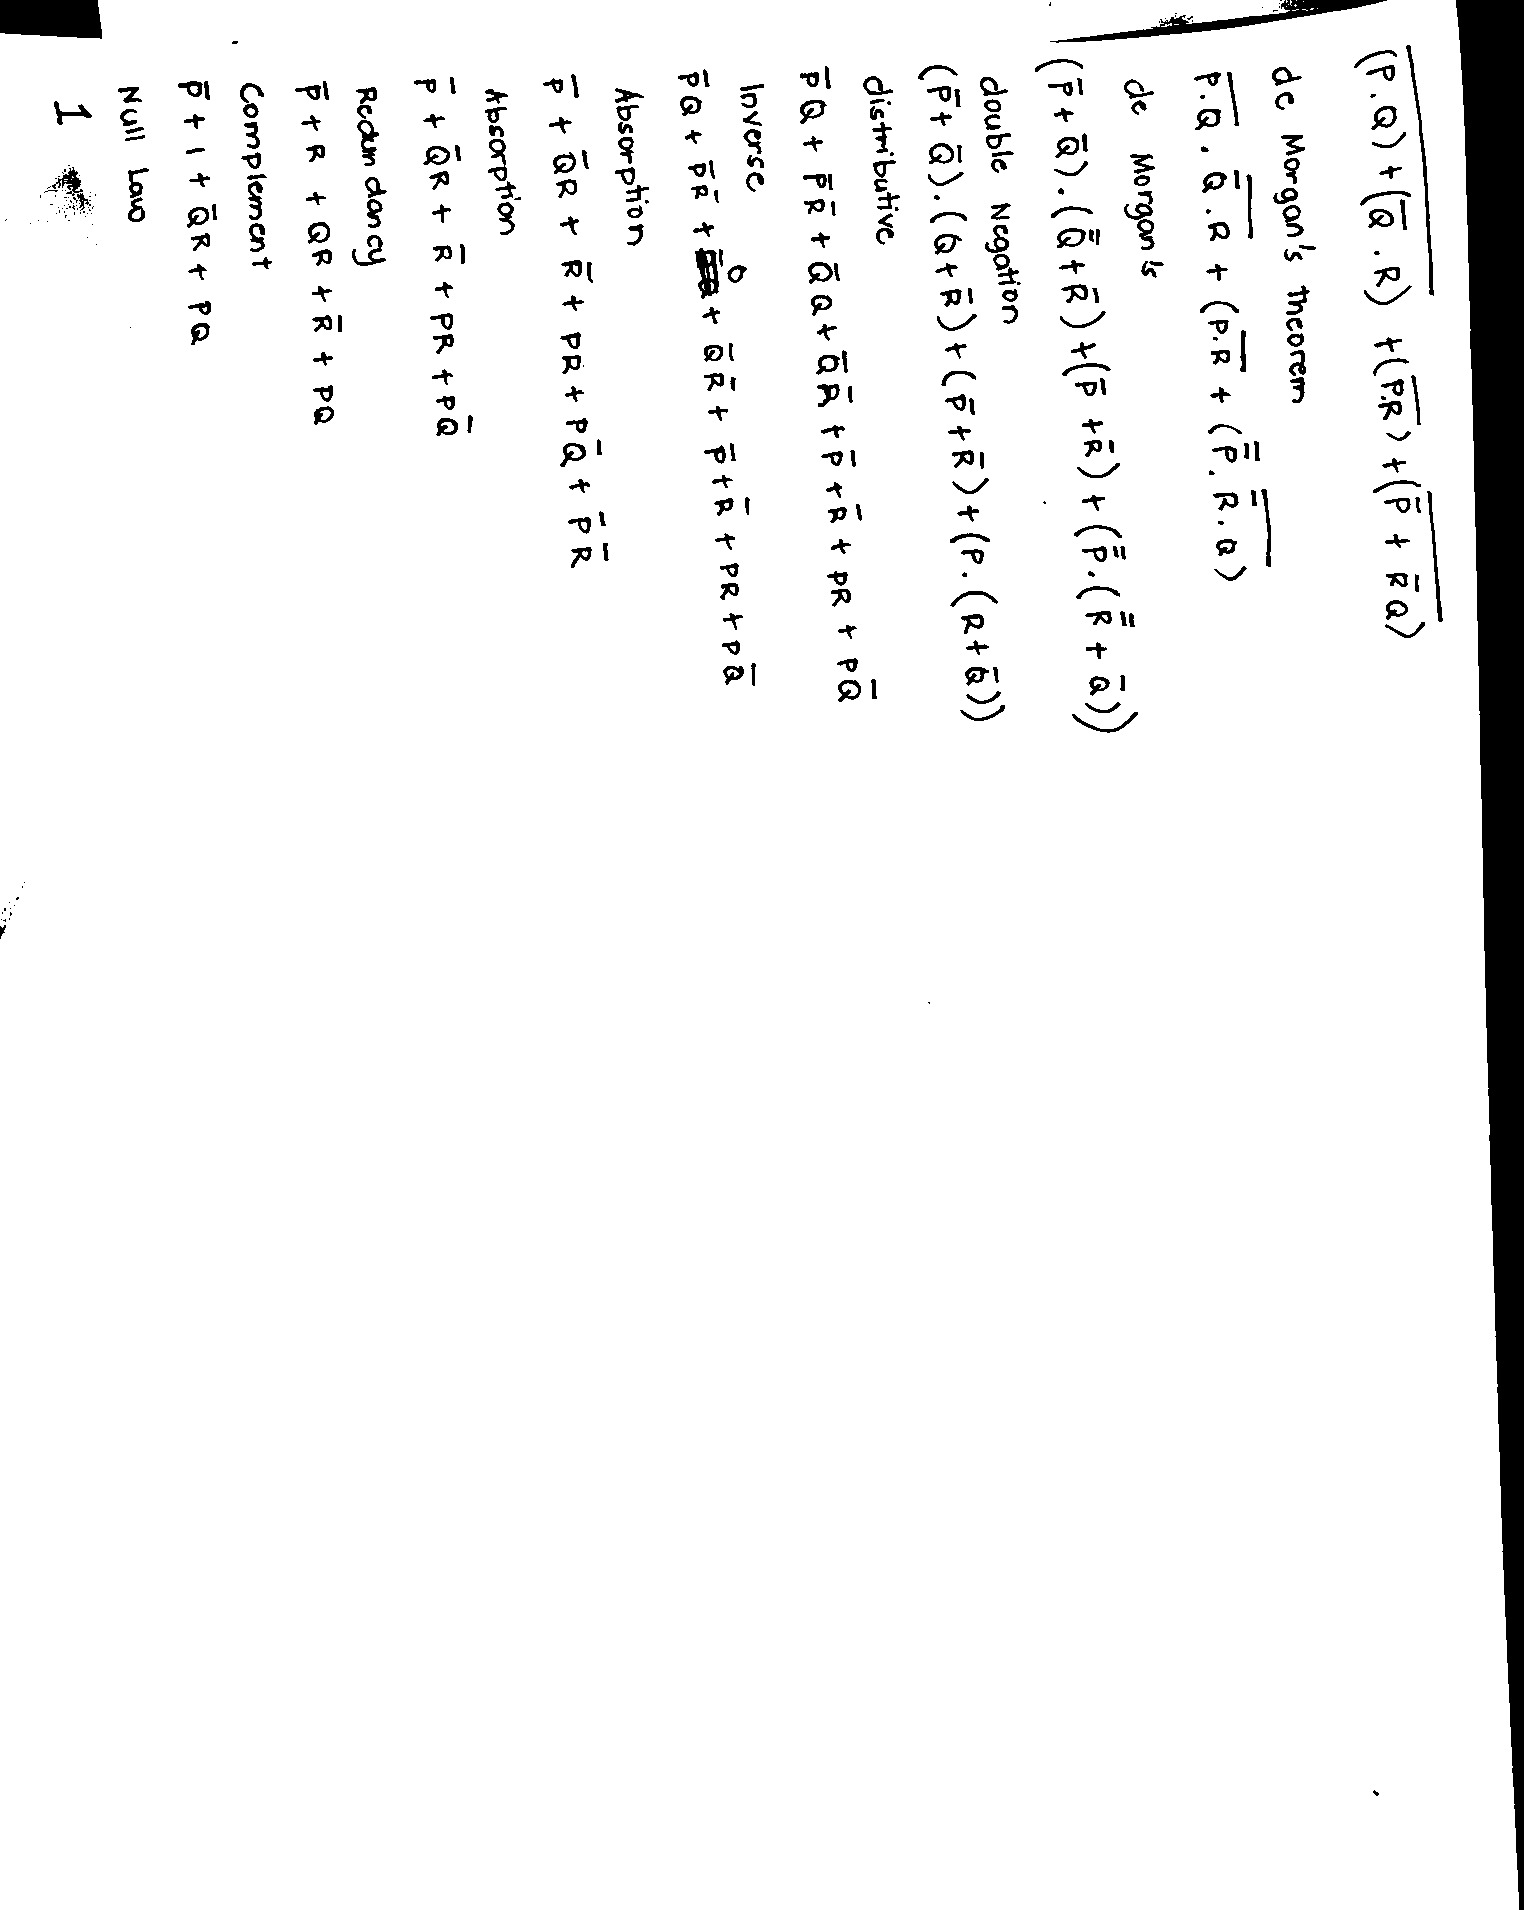 (P.Q)+(Q̅.R) +(P.R)+(P̅ + R̅Q)
de Morgan's theorem
P.Q . Q̅.R + (P.R + (P̿. R̿.Q)
de Morgan's
(P̅+Q̅).(Q̿+R̅)+(P̅+R̅)+(P̿.(R̿+Q̅))
double Negation
(P̅+Q̅).(Q+R̅)+(P̅+R̅)+(P.(R+Q̅))
distributive
P̅Q+P̅R̅+Q̅Q+Q̅R̅+P̅+R̅+PR+PQ̅
Inverse
P̅Q+P̅R̅+0+Q̅R̅+P̅+R̅+PR+PQ̅
Absorption
P̅+Q̅R+R̅+PR+PQ̅+P̅R̅
Absorption
P̅+Q̅R+R̅+PR+PQ̅
Redundancy
P̅+R+QR+R̅+PQ
Complement
P̅+1+Q̅R+PQ
Null Law
1